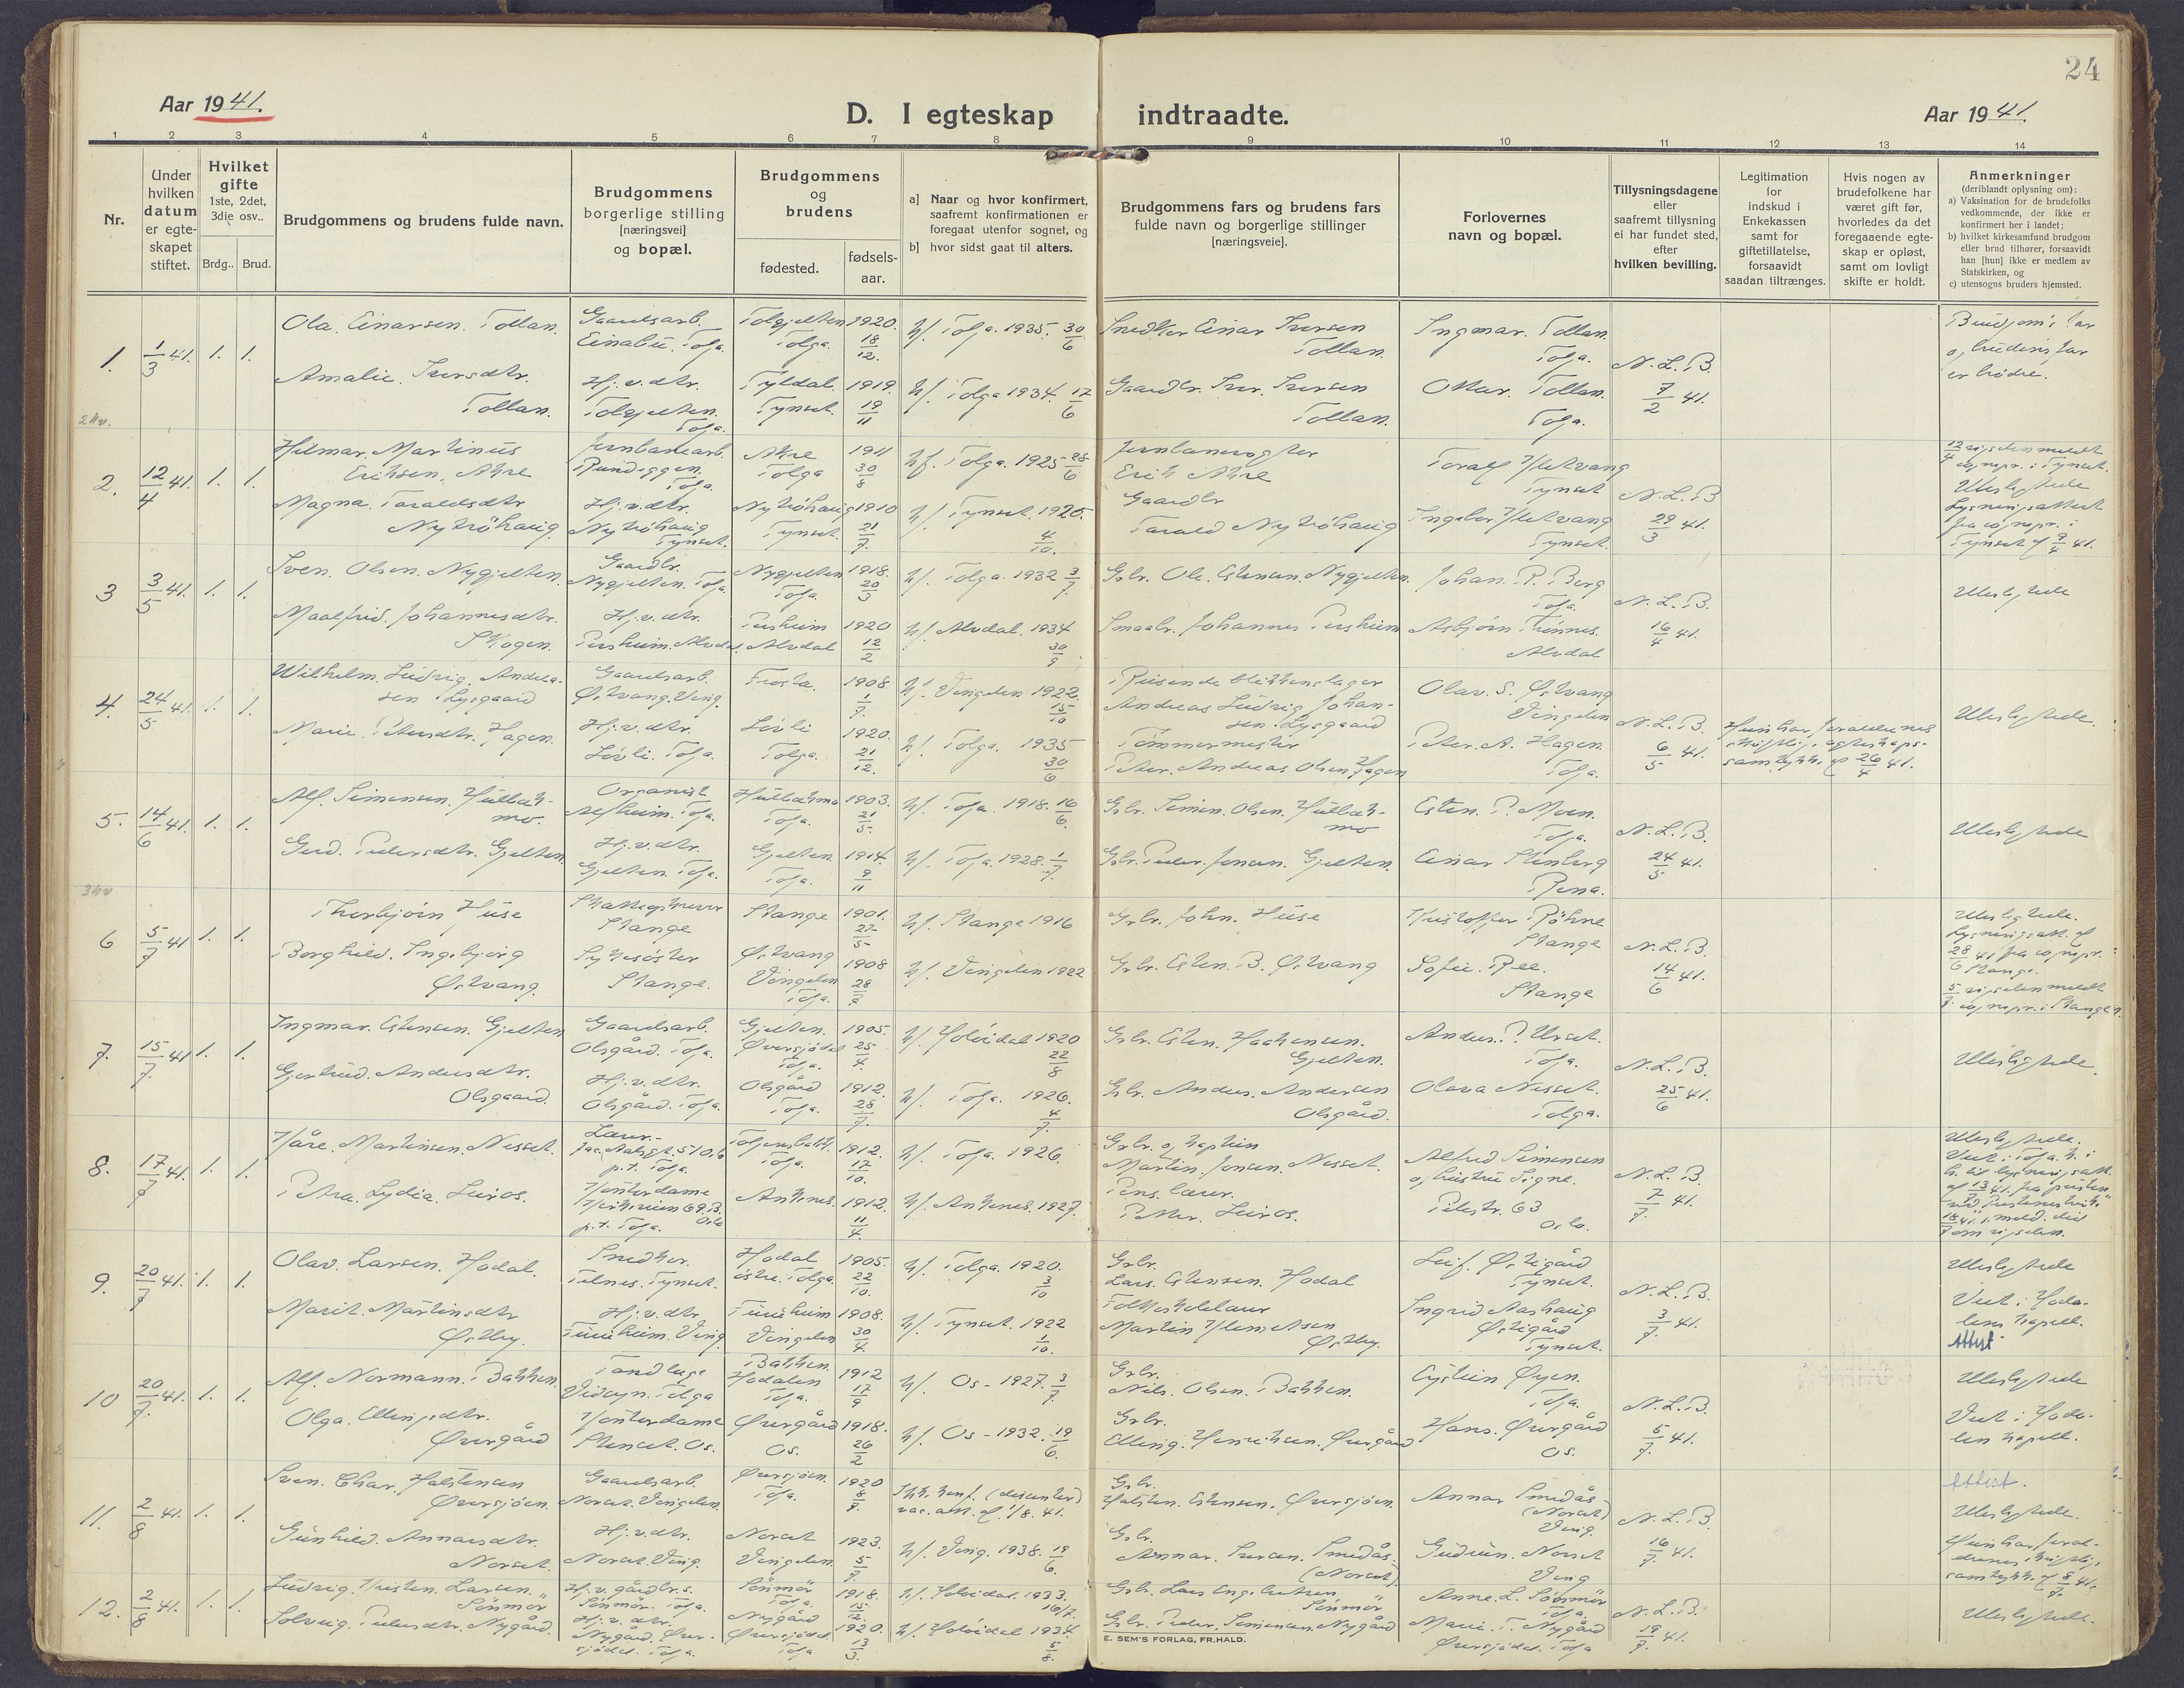 24
Aar 1941.
D. I egteskap indtraadte.
Aar 1941.
1 2 3 4 5 6 7 8 9 10 11 12 13 14
Nr.
Under hvilken datum er egteskapet stiftet.
Hvilket gifte 1ste, 2det, 3die osv..
Brdg.. Brud.
Brudgommens og brudens fulde navn.
Brudgommens borgerlige stilling [næringsvei] og bopæl.
Brudgommens og brudens
fødested.
fødsels-aar.
a] Naar og hvor konfirmert, saafremt konfirmationen er foregaat utenfor sognet, og
b] hvor sidst gaat til alters.
Brudgommens fars og brudens fars fulde navn og borgerlige stillinger [næringsveie].
Forlovernes navn og bopæl.
Tillysningsdagene eller saafremt tillysning ei har fundet sted, efter hvilken bevilling.
Legitimation for indskud i Enkekassen samt for giftetillatelse, forsaavidt saadan tiltrænges.
Hvis nogen av brudefolkene har været gift før, hvorledes da det foregaaende egteskap er opløst, samt om lovligt skifte er holdt.
Anmerkninger
(deriblandt oplysning om):
a) Vaksination for de brudefolks vedkommende, der ikke er konfirmert her i landet;
b) hvilket kirkesamfund brudgom eller brud tilhører, forsaavidt han [hun] ikke er medlem av Statskirken, og
c) utensogns bruders hjemsted.
1. 1/3 41. 1. 1.
Ola. Einarsen. Tollan.
Gaardsarb.
Einabu. Tolga.
Tolgjelten
Tolga.
1920. 18/12.
kf. Tolga. 1935. 30/6
Snedker Einar Iversen
Tollan.
Ingmar. Tollan.
Tolga.
N. L. B.
7/2 41.
Brudgom's far
og brudens far
er brødre.
Amalie. Iversdtr.
Tollan.
Hj. v. dtr.
Tolgjelten.
Tolga.
Tyldal.
Tynset.
1919. 19/11
kf. Tolga 1934. 17/6
Gaardbr. Iver. Iversen
Tollan.
Ottar. Tollan.
Tolga.
2. 12/4 41. 1. 1.
Hilmar. Martinus
Eriksen. Akre
Jernbanearb.
Tolga.
Akre
Tolga
1911 30/8
kf. Tolga. 1925 28/6
Jernbanevogter
Erik Akre
Toralf
Tynset
N. L. B
29/3 41.
Magna. Taraldsdtr
Nytrøhaug.
Hj. v. dtr.
Nytrøhaug
Tynset.
Nytrøhaug
Tynset.
1910 21/7.
kf. Tynset. 1925.
4/10.
Gaardbr
Tarald Nytrøhaug
Ingebor
Tynset.
12/4 vigselen meldt
sognepr. i Tynset.
Ubeslegtede
Lysningsattest
fra sognepr. i
Tynset af 9/4 41.
3 3/5 41. 1. 1.
Sven. Olsen. Nygjelten.
Gaardbr.
Nygjelten. Tolga.
Nygjelten
Tolga.
1918. 20/3
kf. Tolga. 1932 3/7
Gbr. Ole. Estensen. Nygjelten.
Johan. P. Berg
Tolga.
N. L. B.
16/4 41.
Ubeslegtede
Maalfrid. Johannesdtr.
Skogen.
Hj. v. dtr.
Alvdal
1920 12/2
kf. Alvdal. 1934
30/9
Smaabr. Johannes
Asbjørn
Alvdal
4. 24/5 41. 1. 1.
Wilhelm. Ludvig. Andrea-
sen. Lysgaard
Gaardsarb.
Østvang. Ving.
Frosta.
1908 1/7.
kf. Vingelen 1922.
15/10
Reisende blikkenslager
Andreas Ludvig Johan-
sen. Lysgaard
Olav. S. Østvang
Vingelen
N. L. B.
6/5 41.
Hun har forældrenes
skriftlige egteskaps-
samtykke af 26/4 41.
Ubeslegtede.
Marie. Petersdtr. Hagen.
Hj. v. dtr.
Løvli. Tolga.
Løvli
Tolga.
1920. 21/12.
kf. Tolga. 1935
30/6
Tømmermester
Peter. Andreas Olsen Hagen
Peter. A. Hagen.
Tolga.
5. 14/6 41. 1. 1.
Alf. Simensen. Hulbæk-
mo.
Organist
Alfheim. Tolga.
Hulbækmo
Tolga.
1903. 21/5.
kf. Tolga. 1918. 16/6.
Gbr. Simen. Olsen. Hulbæk-
mo
Esten. P. Moen.
Tolga.
N. L. B.
24/5 41.
Ubeslegtede
Gerd. Pedersdtr. Gjelten.
Hj. v. dtr.
Gjelten. Tolga.
Gjelten.
Tolga.
1914. 9/11
kf. Tolga. 1928. 1/7.
Gbr. Peder. Jonsen. Gjelten.
Einar Stenberg
Rena.
6 5/7 41 1. 1.
Thorbjørn Huse
Stange
Stange
1901. 22/5.
kf. Stange 1916
Gbr. John. Huse
Kristoffer Røhne
Stange
N. L. B.
14/6 41.
Ubeslegtede.
Lysningsatt. af
28/6 41 fra sognepr.
i Stange.
5/7 vigselen meldt
sognepr. i Stange.
Borghild. Ingebjørg
Østvang.
Sykesøster
Stange.
Østvang
Vingelen
Tolga.
1908
kf. Vingelen 1922
Gbr. Esten. B. Østvang
Sofie. Ree.
Stange
7. 15/7. 41 1. 1.
Ingmar. Estensen. Gjelten
Gaardsarb.
Olsgård. Tolga.
Gjelten.
Øversjødal
Tolga.
1905. 25/4.
kf. Holøidal 1920
22/8
Gbr. Esten. Haakensen.
Gjelten.
Anders. P. Urset.
Tolga.
N. L. B.
25/6 41.
Ubeslegtede.
Gjertrud. Andersdtr.
Olsgaard.
Hj. v. dtr.
Olsgård. Tolga.
Olsgård
Tolga.
1912. 28/7.
kf. Tolga. 1926.
4/7.
Gbr. Anders. Andersen
Olsgård.
Olava Nesset.
Tolga.
8. 17/7 41. 1. 1.
Håre. Martinsen. Nesset.
Lærer.
p.t. Tolga.
Tolga.
1912. 17/10.
kf. Tolga. 1926.
Gbr. og kaptein
Martin. Jonsen. Nesset.
Alfred Simensen
og hustru Signe.
Oslo.
N. L. B.
7/7. 41.
Ubeslegtede.
Petra. Lydia. Leiros.
Kontordame
Oslo
p.t. Tolga.
Ankenes.
1912. 11/4
kf. Ankenes. 1927.
Pens. lærer.
Petter. Leiros.
9. 20/7 41. 1. 1.
Olav. Larsen. Hodal.
Snedker.
Telnes. Tynset.
Hodal
østre. Tolga.
1905. 22/10.
kf. Tolga. 1920.
3/10
Gbr.
Lars. Estensen. Hodal
Leif. Østigård
Tynset.
N. L. B.
3/7. 41.
Ubeslegtede
Viet i Hoda-
len kapell.
Attest
Marit. Martinsdtr
Østby.
Hj. v. dtr.
Furuheim. Ving.
Furuheim
Vingelen
1908. 30/4
kf. Tynset. 1922
1/10.
Folkeskolelærer
Martin Klemetsen
Østby.
Ingrid Aashaug
Østigård
Tynset.
10 20/7. 41. 1. 1.
Alf. Normann. Bakken.
Tandlæge
Vidsyn. Tolga
Bakken.
Hodalen
Tolga.
1912 17/9
kf. Os - 1927. 3/7.
Gbr.
Nils. Olsen. Bakken.
Eystein Øyen.
Tolga.
N. L. B.
5/7. 41.
Ubeslegtede
Viet i Hoda-
len kapell.
Olga. Ellingsdtr.
Øvergård
Kontordame
Stenset. Os.
Øvergård
Os.
1918. 26/2
kf. Os - 1932. 19/6.
Gbr.
Elling. Henriksen. Øvergård
Hans. Øvergård
Os.
11. 2/8 41. 1. 1.
Sven. Char. Halstensen
Øversjøen.
Gaardsarb.
Norset. Vingelen.
Øversjøen.
Tolga.
1920 8/7
Ikke konf. (dissenter)
vac. att. af 1/8. 41.
Gbr.
Halsten. Estensen. Øversjøen.
Annar Smedås
(Norset)
Ving.
N. L. B.
16/7. 41.
Attest.
Ubeslegtede.
Hun har foræl-
drenes skriftlige
samtykke af 8/7. 41.
Gunhild. Annarsdtr.
Norset.
Hj. v. dtr.
Norset. Ving.
Norset
Vingelen.
1923. 5/7
kf. Ving. 1938. 19/6.
Gbr.
Annar. Iversen. Smedås.
(Norset)
Gudrun. Norset
Ving
12. 2/8 41. 1. 1.
Ludvig. Kristen. Larsen.
Sønmør
Hj. v. gårdbr. s.
Sønmør. Tolga.
Sønmør
Tolga.
1918. 15/12.
kf. Holøidal. 1933.
16/7.
Gbr. Lars Engebretsen
Sønmør
Anne. L. Sønmør
Tolga.
N. L. B.
19/7. 41.
Ubeslegtede.
Solveig. Pedersdtr. Nygård.
Hj. v. dtr.
Nygård. Øver-
sjødal. Tolga.
Nygård
Øversjødal.
Tolga
1920. 13/3.
kf. Holøidal 1934.
5/8.
Gbr. Peder. Simensen. Nygård
Marie. T. Nygård
Øversjødal. Tolga
E. SEM'S FORLAG, FR.HALD.